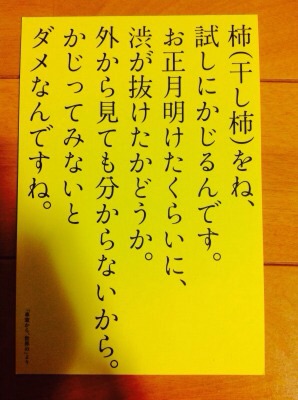 柿(干し柿)をね、
試しにかじるんです。
お正月明けたくらいに、
渋が抜けたかどうか。
外から見ても分からないから。
かじってみないと
ダメなんですね。